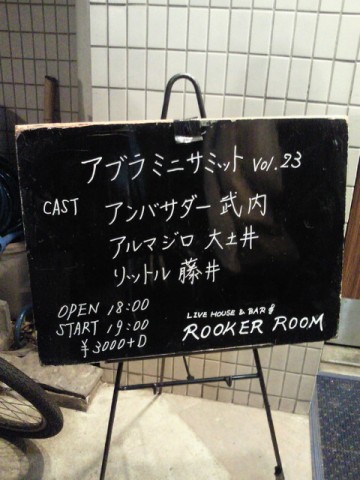 アブラミニサミット vol.23
CAST アンバサダー 武内
アルマジロ 大土井
リットル 藤井
OPEN 18:00
START 19:00
¥3000+D
LIVE HOUSE & BAR
ROOKER ROOM